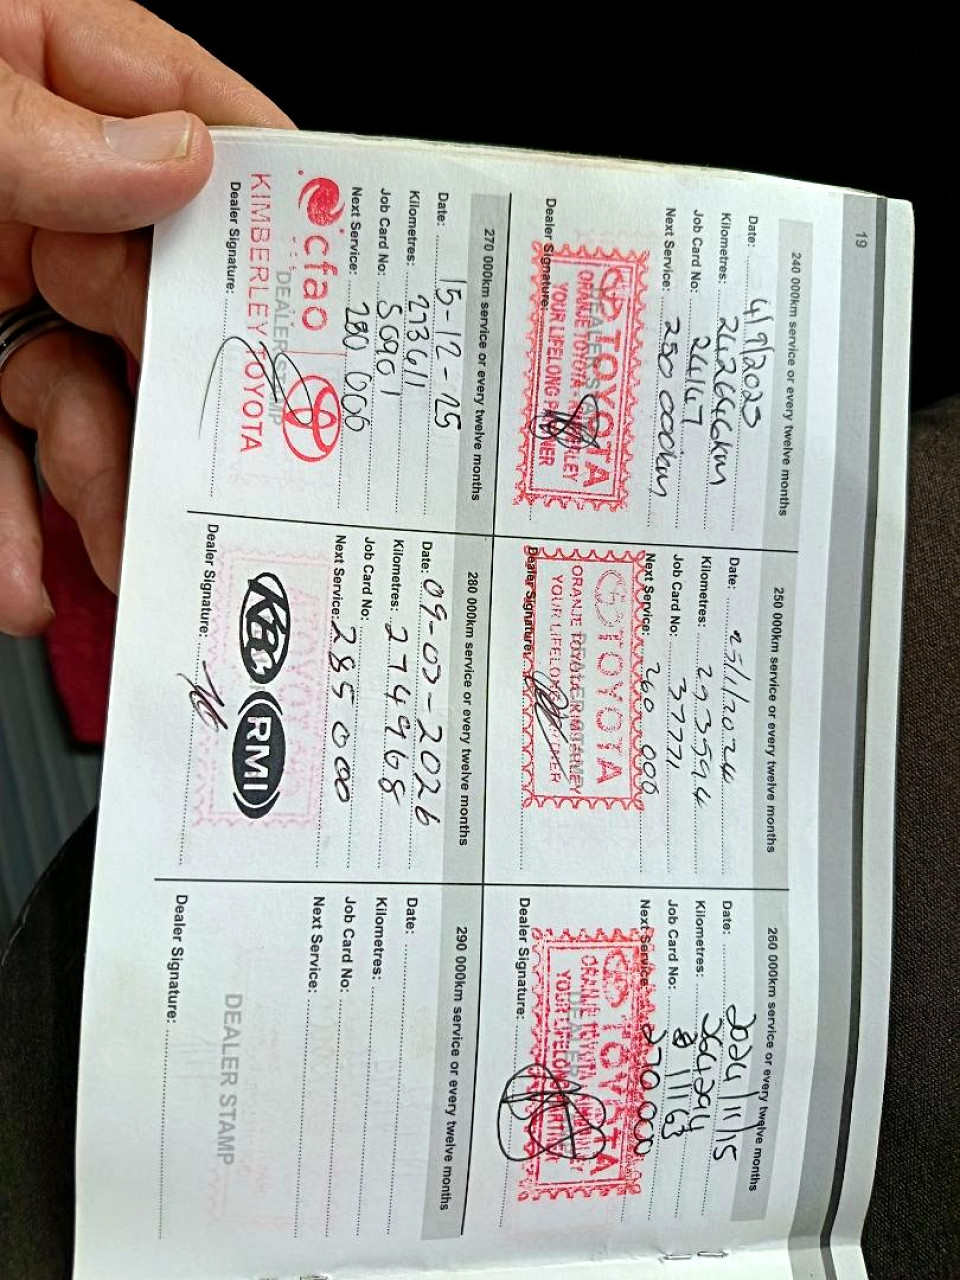 19
240 000km service or every twelve months
Date: 4/9/2023
Kilometres: 242646km
Job Card No: 24147
Next Service: 250 000km
DEALER STAMP
TOYOTA
ORANJE TOYOTA KIMBERLEY
YOUR LIFELONG PARTNER
Dealer Signature:
250 000km service or every twelve months
Date: /1/2024
Kilometres: 253594
Job Card No: 37771
Next Service: 260 000
DEALER STAMP
TOYOTA
ORANJE TOYOTA KIMBERLEY
YOUR LIFELONG PARTNER
Dealer Signature:
260 000km service or every twelve months
Date: 2024/11/15
Kilometres: 264294
Job Card No: 11163
Next Service: 270 000
DEALER
TOYOTA
ORANJE TOYOTA KIMBERLEY
YOUR LIFELONG PARTNER
Dealer Signature:
270 000km service or every twelve months
Date: 15-12-25
Kilometres: 273611
Job Card No: 50961
Next Service: 280 000
cfao
DEALER STAMP
KIMBERLEY TOYOTA
Dealer Signature:
280 000km service or every twelve months
Date: 09-03-2026
Kilometres: 274968
Job Card No:
Next Service: 285 000
RMI
Dealer Signature:
290 000km service or every twelve months
Date:
Kilometres:
Job Card No:
Next Service:
DEALER STAMP
Dealer Signature: